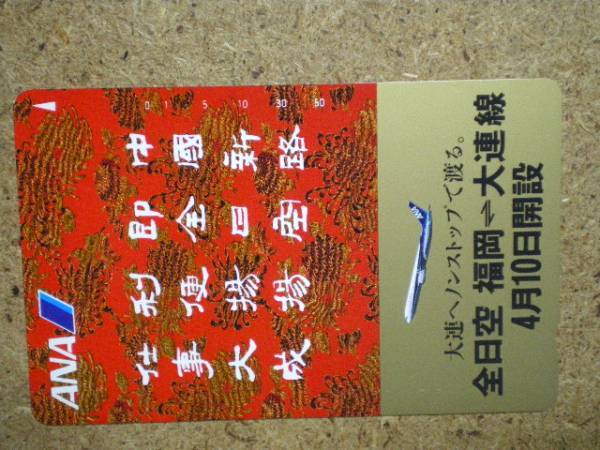 ANA
中國新路
即全日空
利便揚揚
仕事大成
大連へノンストップで渡る。
全日空 福岡⇌大連線
4月10日開設
0 1 5 10 30 50